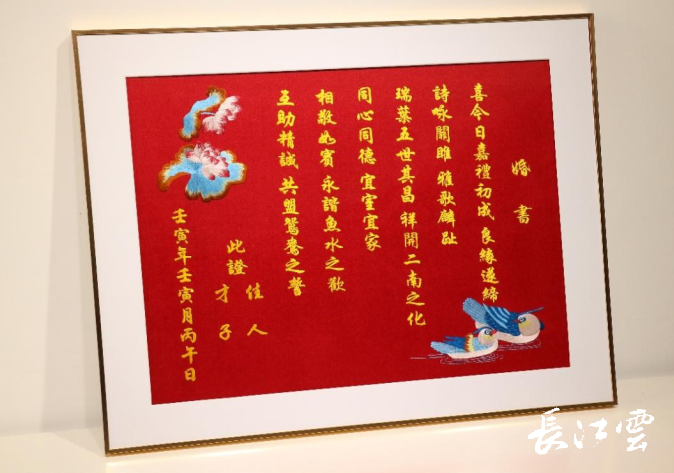 婚書
喜今日嘉禮初成 良緣遂締
詩咏關雎 雅歌麟趾
瑞葉五世其昌 祥開二南之化
同心同德 宜室宜家
相敬如賓 永諧魚水之歡
互助精誠 共盟鴛鴦之誓
佳人
才子
此證
壬寅年壬寅月丙午日
長江雲